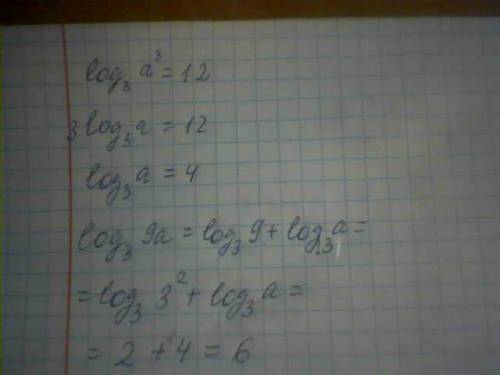 log₃ a³ = 12
3 log₃ a = 12
log₃ a = 4
log₃ 9a = log₃ 9 + log₃ a =
= log₃ 3² + log₃ a =
= 2 + 4 = 6